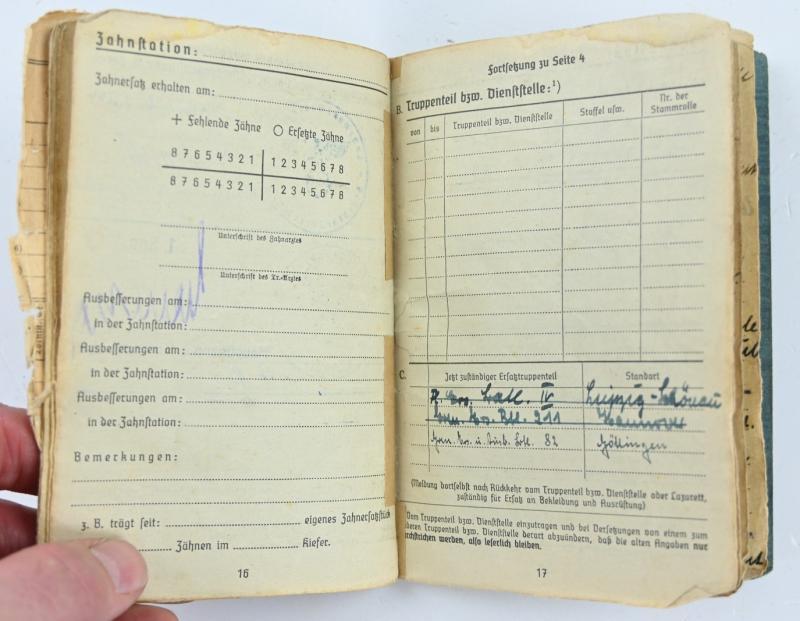 Zahnstation:
Zahnersatz erhalten am:
+ Fehlende Zähne ○ Ersetzte Zähne
8 7 6 5 4 3 2 1 | 1 2 3 4 5 6 7 8
8 7 6 5 4 3 2 1 | 1 2 3 4 5 6 7 8
Unterschrift des Zahnarztes
Unterschrift des Tr.-Arztes
Ausbesserungen am:
in der Zahnstation:
Ausbesserungen am:
in der Zahnstation:
Ausbesserungen am:
in der Zahnstation:
Bemerkungen:
z. B. trägt seit: eigenes Zahnersatzstück
Zähnen im Kiefer.
16
Fortsetzung zu Seite 4
B. Truppenteil bzw. Dienststelle:¹)
von bis Truppenteil bzw. Dienststelle Staffel usw. Nr. der Stammrolle
C. Jetzt zuständiger Ersatztruppenteil Standort
IV Leipzig-Schönau
211 Hannover
82 Göttingen
(Meldung dortselbst nach Rückkehr vom Truppenteil bzw. Dienststelle oder Lazarett,
zuständig für Ersatz an Bekleidung und Ausrüstung)
Vom Truppenteil bzw. Dienststelle einzutragen und bei Versetzungen von einem zum
deren Truppenteil bzw. Dienststelle derart abzuändern, daß die alten Angaben nur
rchstrichen werden, also leserlich bleiben.
17